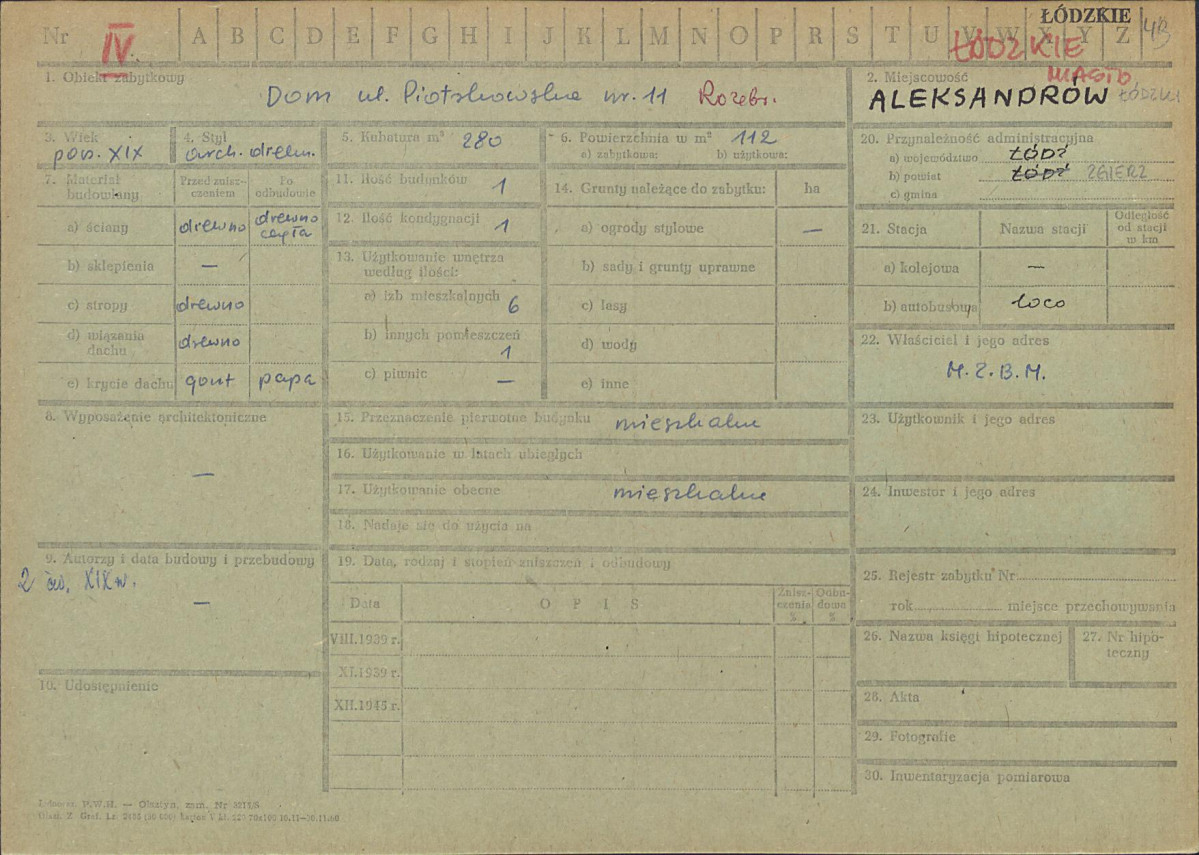 Nr IV. A B C D E F G H I J K L M N O P R S T U V W X Y Z
ŁÓDZKIE
ŁÓDZKIE
MIASTO
1. Obiekt zabytkowy
Dom ul. Piotrkowska nr. 11 Rozebr.
2. Miejscowość
ALEKSANDRÓW ŁÓDZKI
3. Wiek
poł. XIX
4. Styl
arch. drewn.
5. Kubatura m³ 280
6. Powierzchnia w m² 112
a) zabytkowa: b) użytkowa:
7. Materiał budowlany
Przed zniszczeniem
Po odbudowie
a) ściany drewno drewno cegła
b) sklepienia —
c) stropy drewno
d) wiązania dachu drewno
e) krycie dachu gont papa
8. Wyposażenie architektoniczne
—
9. Autorzy i data budowy i przebudowy
2 ćw. XIX w.
—
10. Udostępnienie
11. Ilość budynków 1
12. Ilość kondygnacji 1
13. Użytkowanie wnętrza
według ilości:
a) izb mieszkalnych 6
b) innych pomieszczeń
1
c) piwnic —
14. Grunty należące do zabytku: ha
a) ogrody stylowe —
b) sady i grunty uprawne
c) lasy
d) wody
e) inne
15. Przeznaczenie pierwotne budynku mieszkalne
16. Użytkowanie w latach ubiegłych
17. Użytkowanie obecne mieszkalne
18. Nadaje się do użycia na
19. Data, rodzaj i stopień zniszczeń i odbudowy
Data OPIS Zniszczenia % Odbudowa %
VIII.1939 r.
XI.1939 r.
XII.1945 r.
20. Przynależność administracyjna
a) województwo ŁÓDŹ
b) powiat ŁÓDŹ ZGIERZ
c) gmina
21. Stacja Nazwa stacji Odległość od stacji w km
a) kolejowa —
b) autobusowa loco
22. Właściciel i jego adres
M.Z.B.M.
23. Użytkownik i jego adres
24. Inwestor i jego adres
25. Rejestr zabytku Nr
rok miejsce przechowywania
26. Nazwa księgi hipotecznej
27. Nr hipoteczny
28. Akta
29. Fotografie
30. Inwentaryzacja pomiarowa